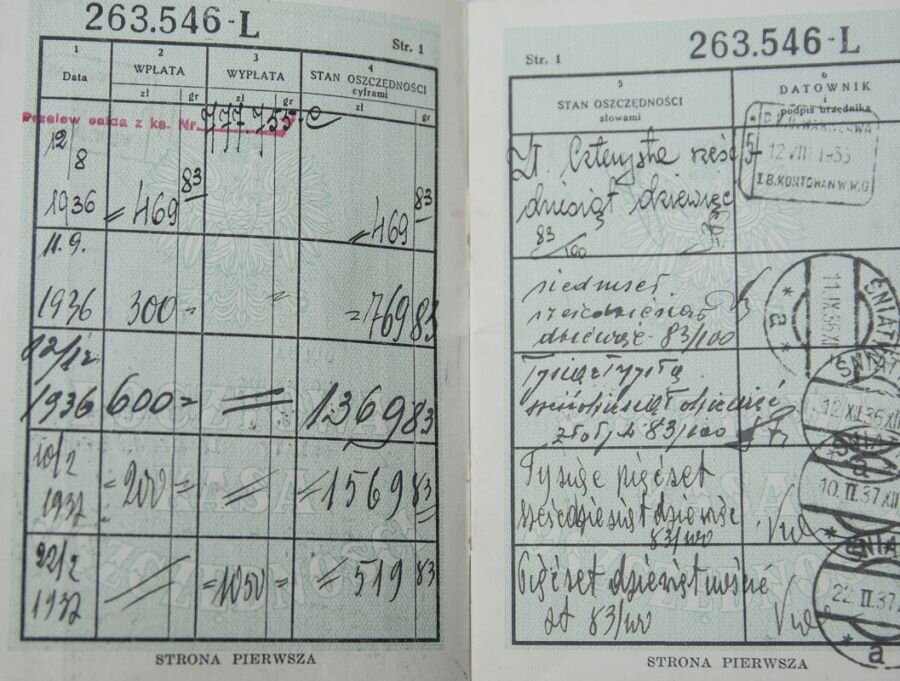 263.546-L
Str. 1
1 2 3 4
Data WPŁATA WYPŁATA STAN OSZCZĘDNOŚCI
cyframi
zł gr zł gr zł gr
Przelew salda z ks. Nr. 777.755
12/8
1936 = 469 83 = 469 83
11.9.
1936 300 = = 769 83
12/12
1936 600 = 1369 83
10/2
1937 = 200 = 1569 83
22/2
1937 = 1050 = 519 83
STRONA PIERWSZA
Str. 1
263.546-L
5 6
STAN OSZCZĘDNOŚCI
słowami
DATOWNIK
i
podpis urzędnika
Zł. Czterysta sześć
dziesiąt dziewięć
83/100
12 VIII 1936
siedmset
sześćdziesiąt
dziewięć 83/100
11.IX.36
ŚNIATY
Tysiąc trzysta
sześćdziesiąt dziewięć
złotych 83/100
12.XII.36
Tysiąc pięćset
sześćdziesiąt dziewięć
83/100
10.II.37
Pięćset
zł 83/100
22.II.37
a
STRONA PIERWSZA